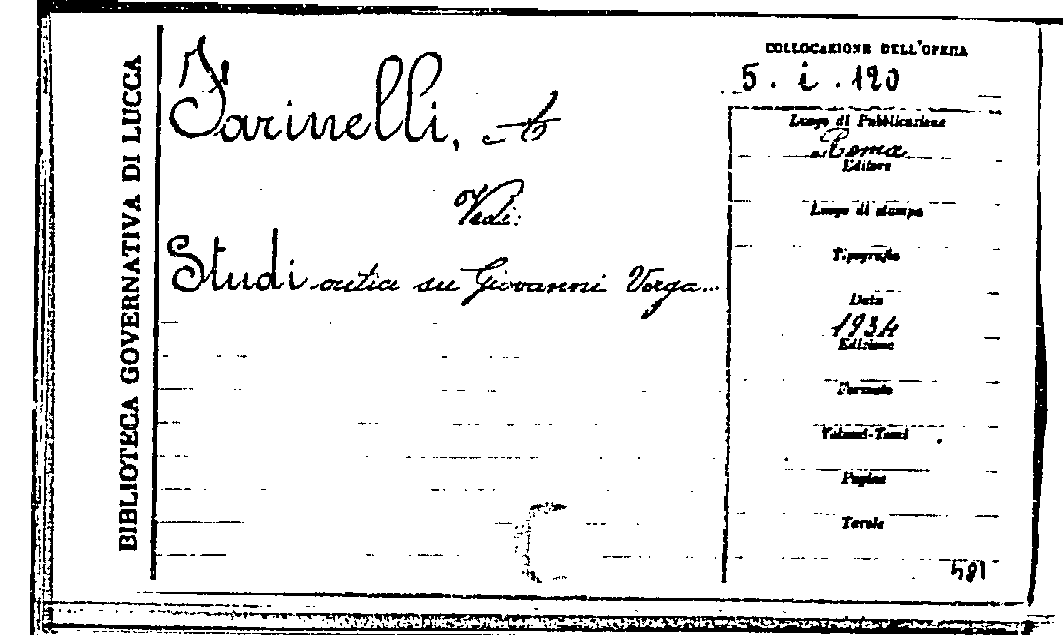 BIBLIOTECA GOVERNATIVA DI LUCCA
Farinelli, A
Vedi:
Studi critici su Giovanni Verga...
COLLOCAZIONE DELL'OPERA
5. i. 120
Luogo di Pubblicazione
Roma
Editore
Luogo di stampa
Tipografia
Data
1934
Edizione
Formato
Volumi-Tomi
Pagine
Tavole
581